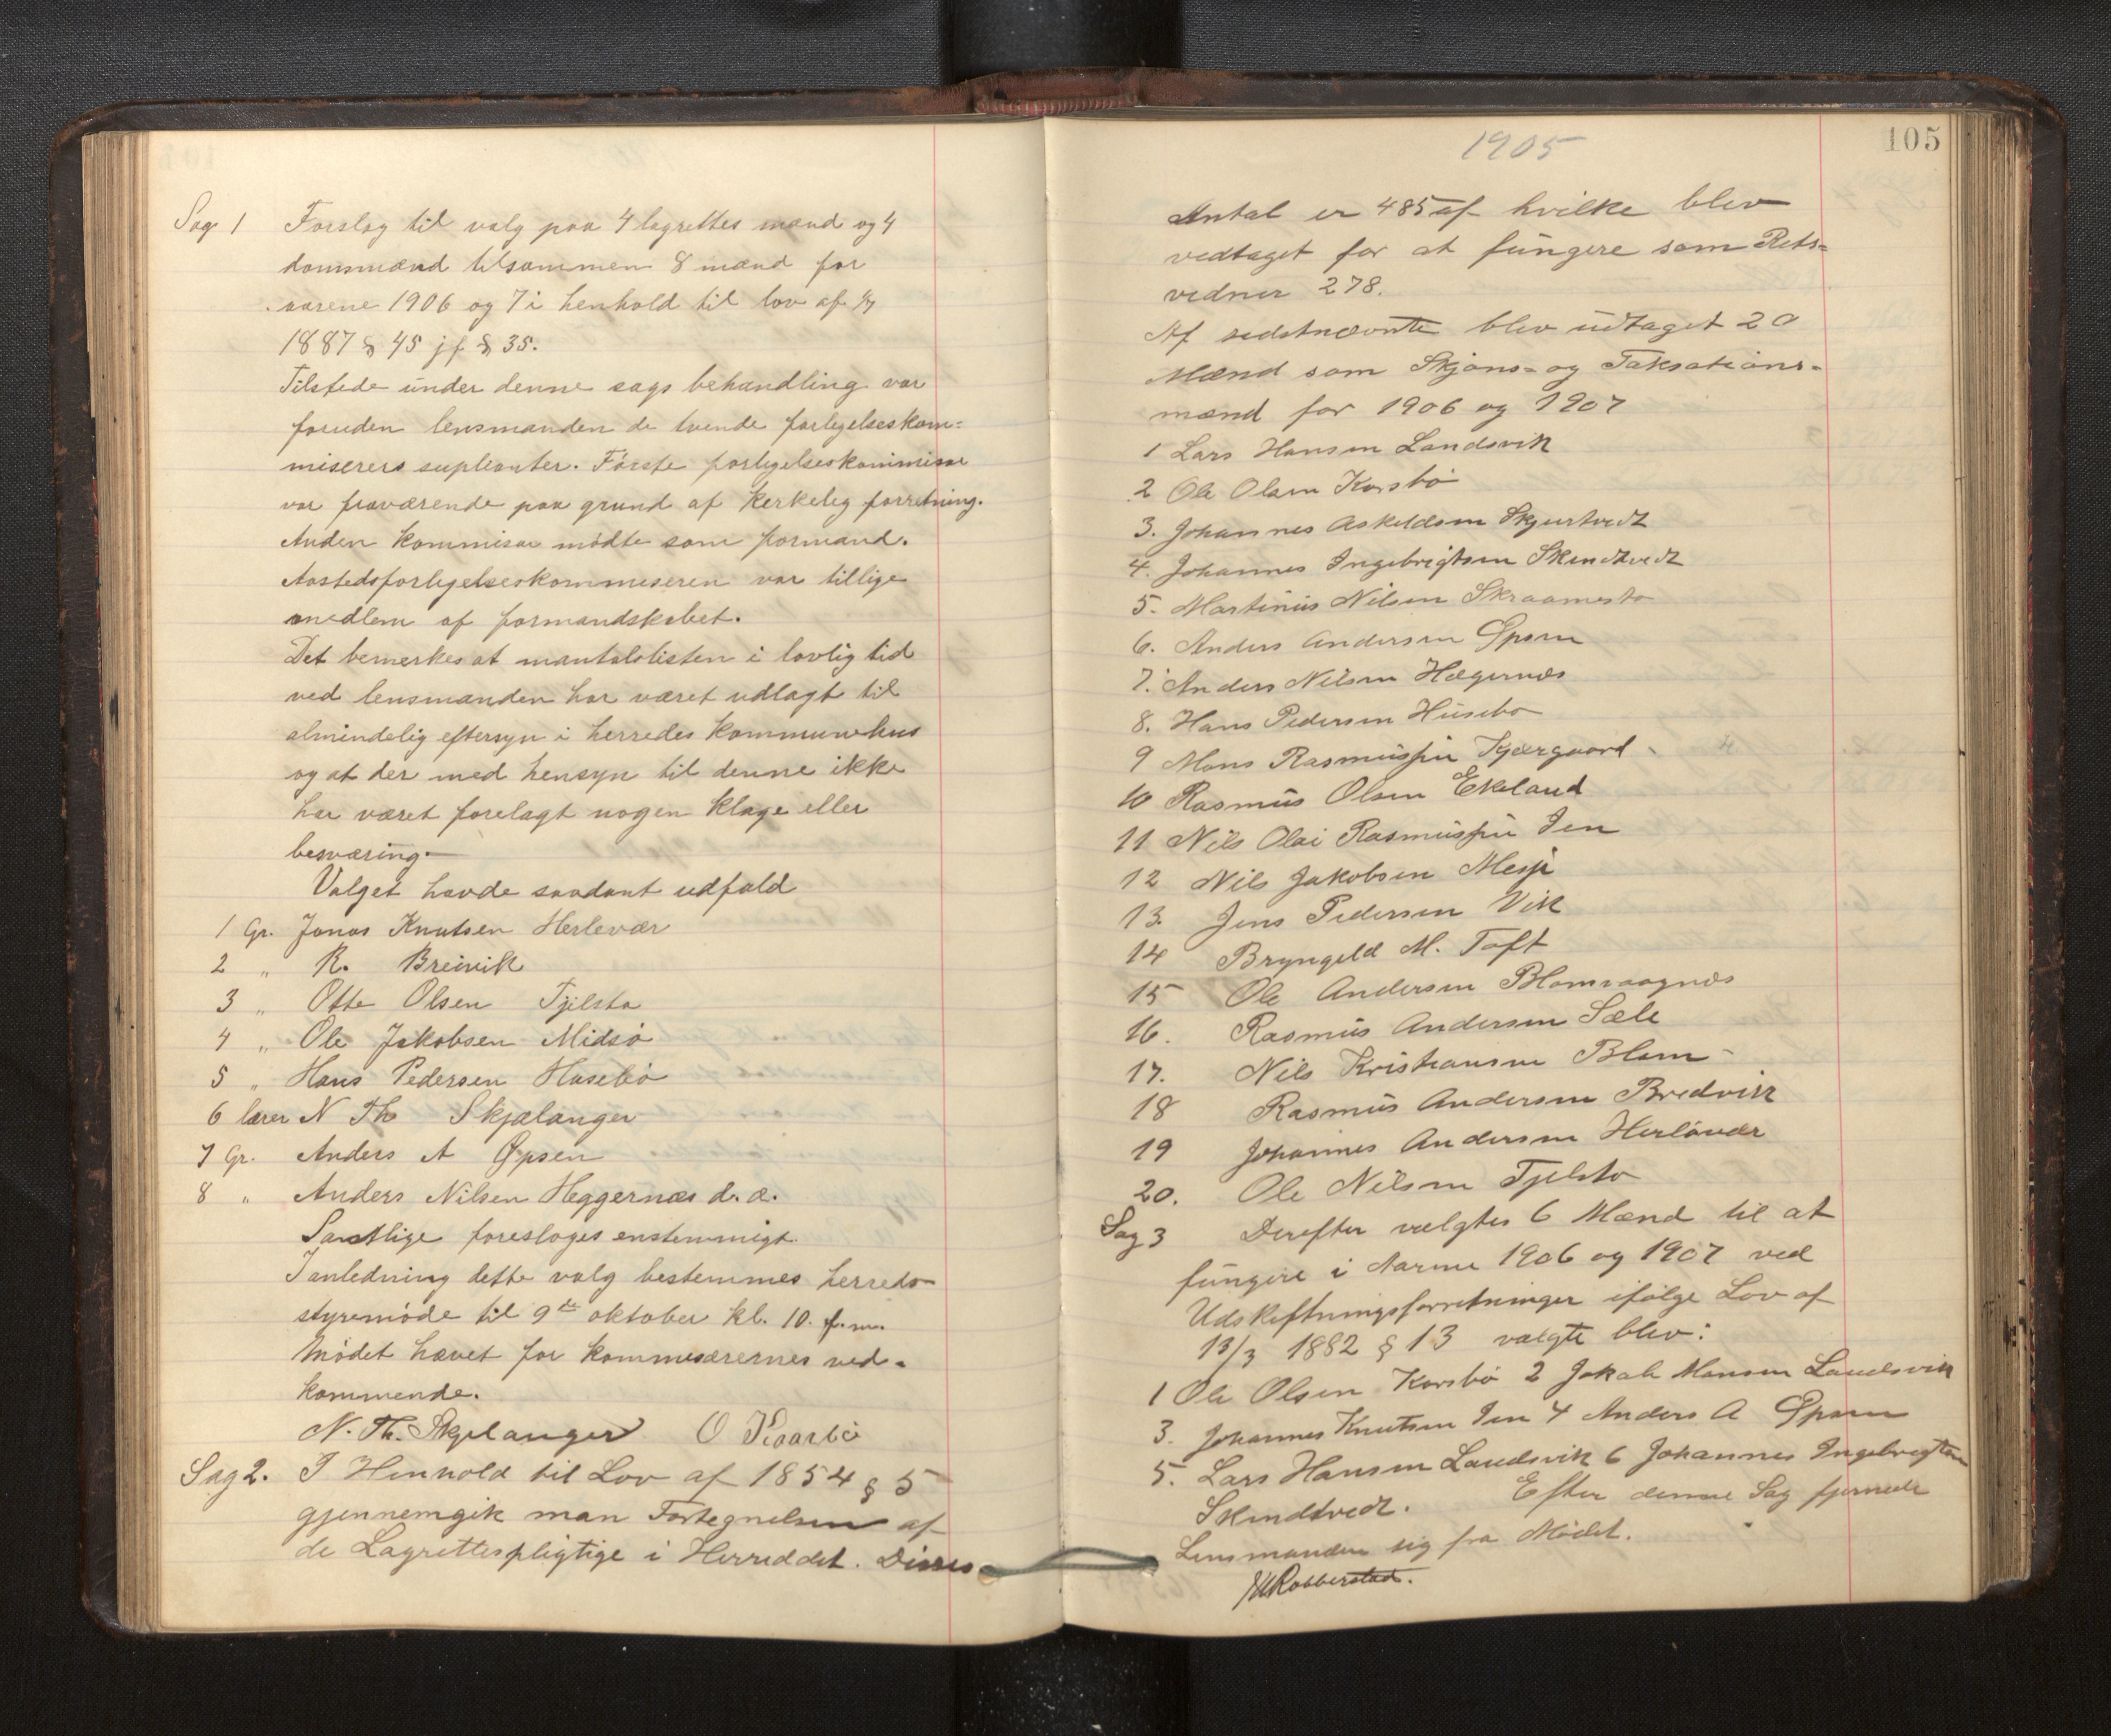 Sag 1 Forslag til valg paa 4 lagrettes mænd og 4
domsmænd tilsammen 8 mænd for
aarene 1906 og 7 i henhold til lov af 1/7
1887 § 45 jf § 35.
Tilstede under denne sags behandling var
foruden lensmanden de tvende forligelseskom=
miserers suplianter. Første forligelseskommisær
var fraværende paa grund af kirkelig forretning.
Anden kommisær mødte som formand.
Aastedsforligelseskommiseren var tillige
medlem af formandskabet.
Det bemerkes at mantalslisten i lovlig tid
ved lensmanden har været udlagt til
almindelig eftersyn i herredes kommunehus
og at der med hensyn til denne ikke
har været forelagt nogen klage eller
besværing.
Valget havde saadant udfald
1 Gr. Jonas Knutsen Herlevær
2 " R. Breivik
3 " Otte Olsen Tjilsta
4 " Ole Jakobsen Midsø
5 " Hans Pedersen Husebø
6 lærer N Th Skjælanger
7 Gr. Anders A Øpsen
8 " Anders Nilsen Heggernæs d. æ.
Samtlige foresloges enstemmigt.
I anledning dette valg bestemmes herreds
styremøde til 9de oktober kl. 10. f.m.
Mødet hævet for kommisærernes ved=
kommende.
N. Th. Skjelanger O Kaarbø
Sag 2. I Henhold til Lov af 1854 § 5
gjennemgik man Fortegnelsen af
de Lagrettespligtige i Herreddet. Disses
1905
105
Antal er 485 af hvilke blev
vedtaget for at fungere som Rets=
vidner 278.
Af sidstnævnte blev udtaget 20
Mænd som Skjøns= og Taksations=
mænd for 1906 og 1907
1 Lars Hansen Landsvik
2 Ole Olsen Korsbø
3. Johannes Askeldsen Skjurtvedt
4. Johannes Ingebrigtsen Skindtvedt
5. Martinus Nilsen Skraamestø
6. Anders Andersen Øpsen
7. Anders Nilsen Hægernæs
8. Hans Pedersen Husebø
9 Mons Rasmussen Kjærgaard
10 Rasmus Olsen Ekeland
11 Nils Olai Rasmussen Jen
12 Nils Jakobsen Mesje
13. Jens Pedersen Vik
14 Bryngeld M. Toft
15 Ole Andersen Blomvaagnæs
16. Rasmus Andersen Sæle
17. Nils Kristiansen Blom
18 Rasmus Andersen Bredvik
19 Johannes Andersen Herløvær
20. Ole Nilsen Tjelsta
Sag 3 Derefter vælgtes 6 Mænd til at
fungere i Aarene 1906 og 1907 ved
Udskiftningsforretninger ifølge Lov af
13/3 1882 § 13 valgte blev:
1 Ole Olsen Korsbø 2 Jakob Monsen Landsvik
3. Johannes Knutsen Jen 4 Anders A Øpsen
5. Lars Hansen Landsvik 6 Johannes Ingebrigtsen
Skindtvedt. Efter denne Sag fjernede
Lensmanden sig fra Mødet.
Robberstad.